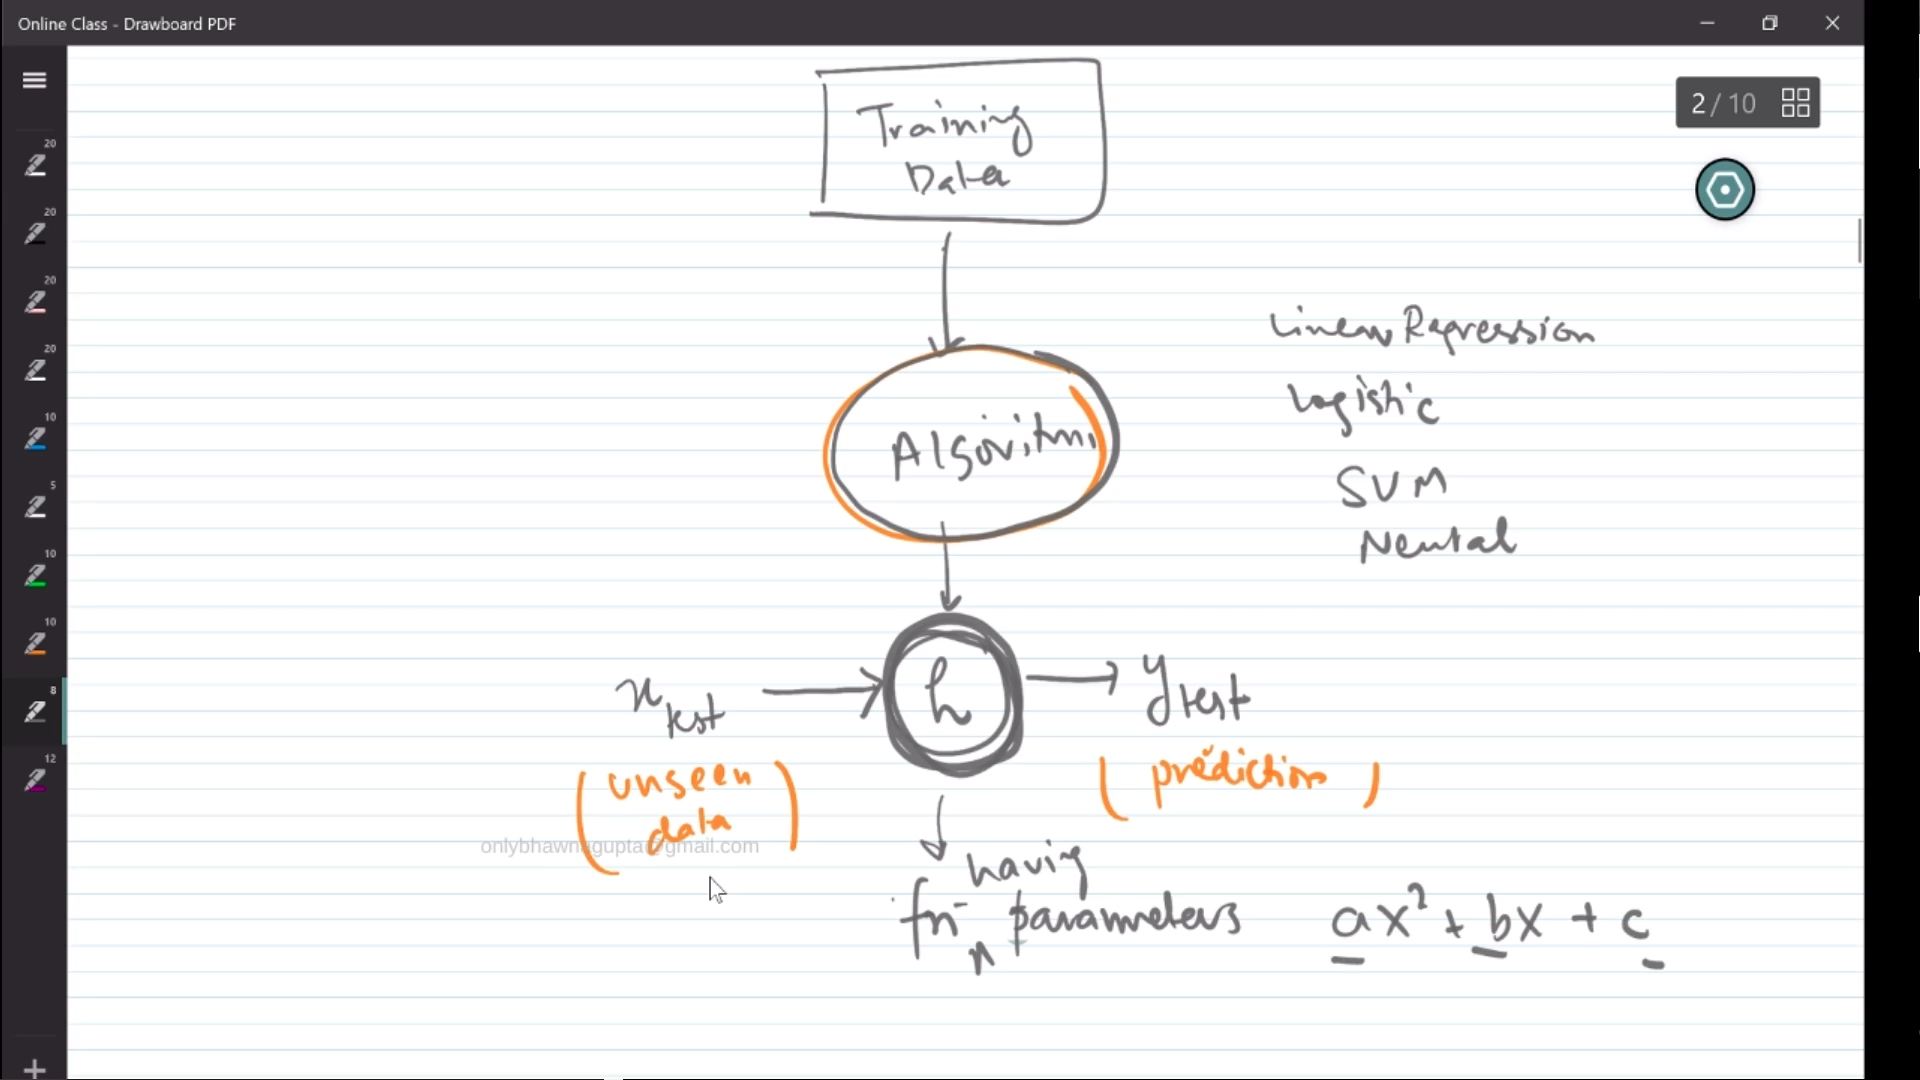 Online Class - Drawboard PDF
2 / 10
20
20
20
20
10
5
10
10
8
12
Training
Data
Linear Regression
Logistic
Algorithm
SVM
Neural
x test
h
y test
(unseen
data)
(prediction)
onlybhawnagupta@gmail.com
having
fn n parameters
ax² + bx + c